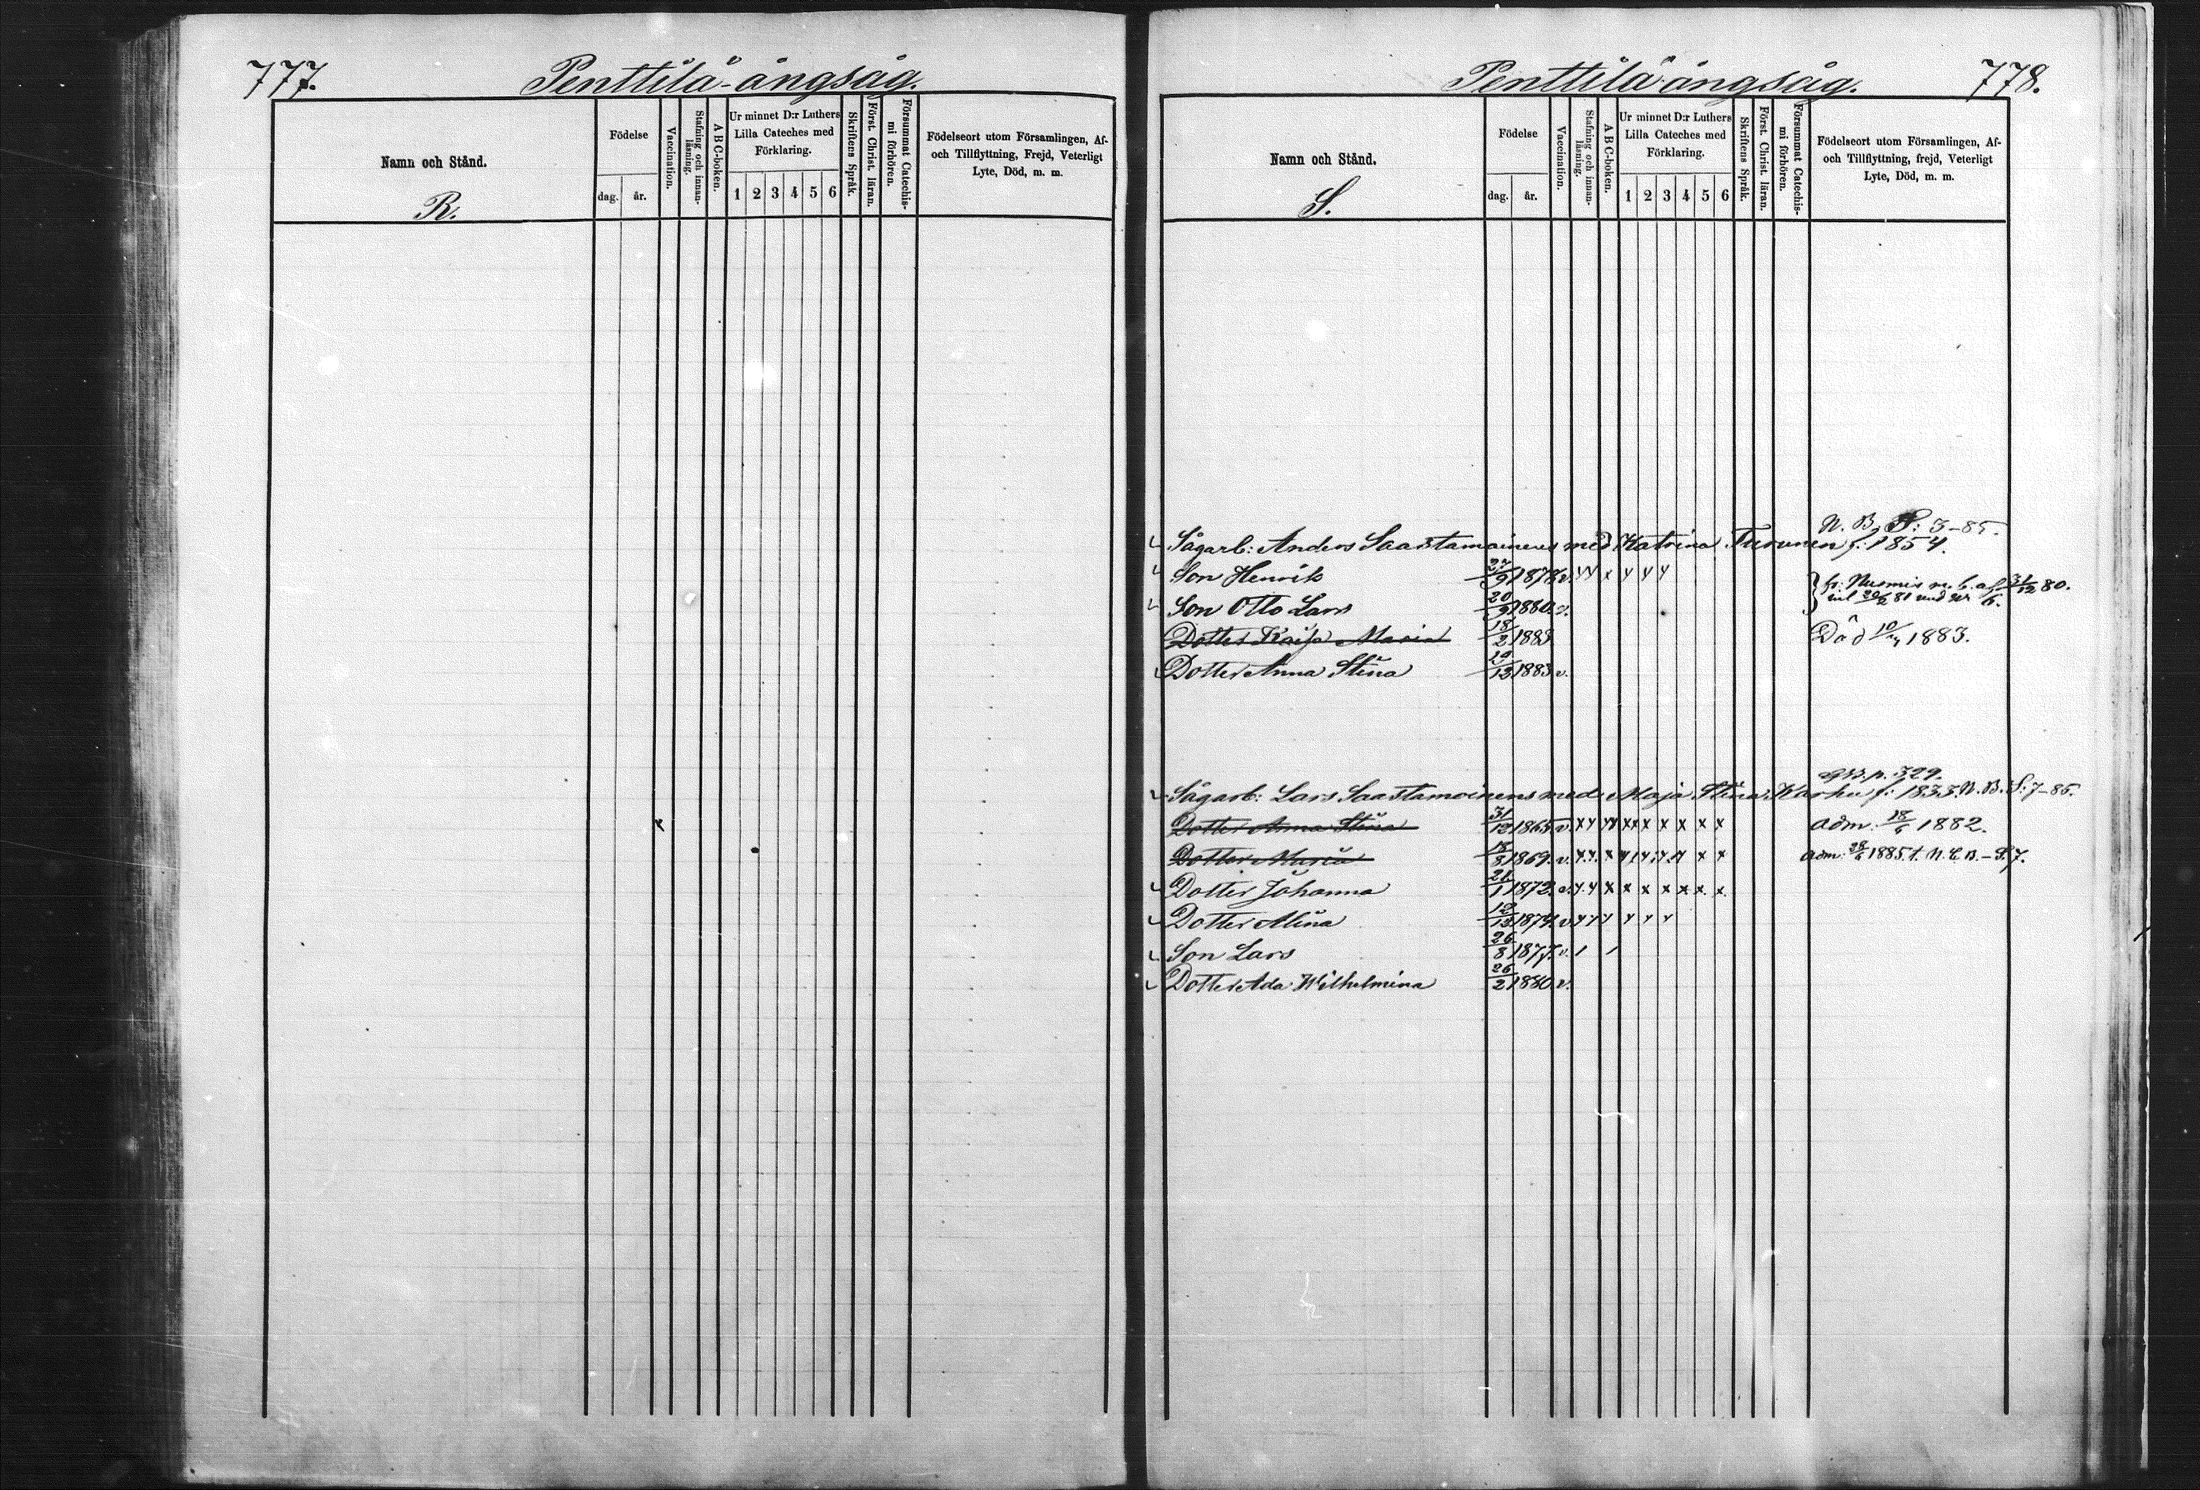 777.
Penttilä-ångsåg.
Namn och Stånd.
R.
Födelse
dag.
år.
Vaccination.
Stafning och innanläsning.
A B C-boken.
Ur minnet D:r Luthers
Lilla Cateches med
Förklaring.
1 2 3 4 5 6
Skriftens Språk.
Först. Christ. läran.
Försummat Catechismi förhören.
Födelseort utom Församlingen, Af-
och Tillflyttning, Frejd, Veterligt
Lyte, Död, m. m.
Penttilä ångsåg.
778.
Namn och Stånd.
S.
Födelse
dag.
år.
Vaccination.
Stafning och innanläsning.
A B C-boken.
Ur minnet D:r Luthers
Lilla Cateches med
Förklaring.
1 2 3 4 5 6
Skriftens Språk.
Först. Christ. läran.
Försummat Catechismi förhören.
Födelseort utom Församlingen, Af-
och Tillflyttning, frejd, Veterligt
Lyte, Död, m. m.
N. B. S: 3-85.
Sågarb: Anders Saastamoinens med Katrina Turunen f: 1854.
Son Henrik 27/9 1878 v. y y x y y y
Son Otto Lars 20/9 1880. v.
Dotter Kaisa Maria 18/2 1883 Död 10/4 1883.
Dotter Anna Stina 20/12 1883 v.
p. 329.
Sågarb: Lars Saastamoinens med Maja Stina Karhu f: 1833. N. B. S: 7-85.
Dotter Anna Stina 31/12 1865 v. x y y x x x x x x x adm. 18/6 1882.
Dotter Maria 18/8 1869 v. y. y. x y y y y x x adm. 28/6 1885. t. N. C. B. - S. 7.
Dotter Johanna 21/1 1872 v. y. y x x x x x x x
Dotter Alina 12/12 1874 v. y y y y x y
Son Lars 26/8 1877. v. / /
Dotter Ada Wilhelmina 26/2 1880. v.